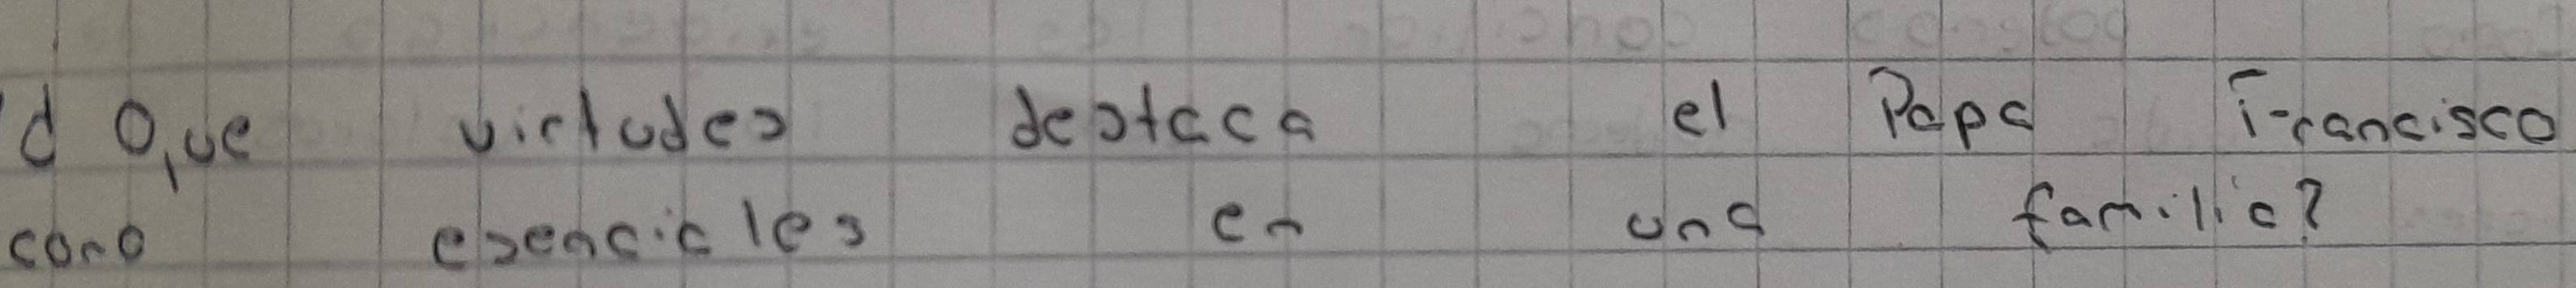 d Que virtudes destaca el Papa Francisco
como esenciales en una familia?